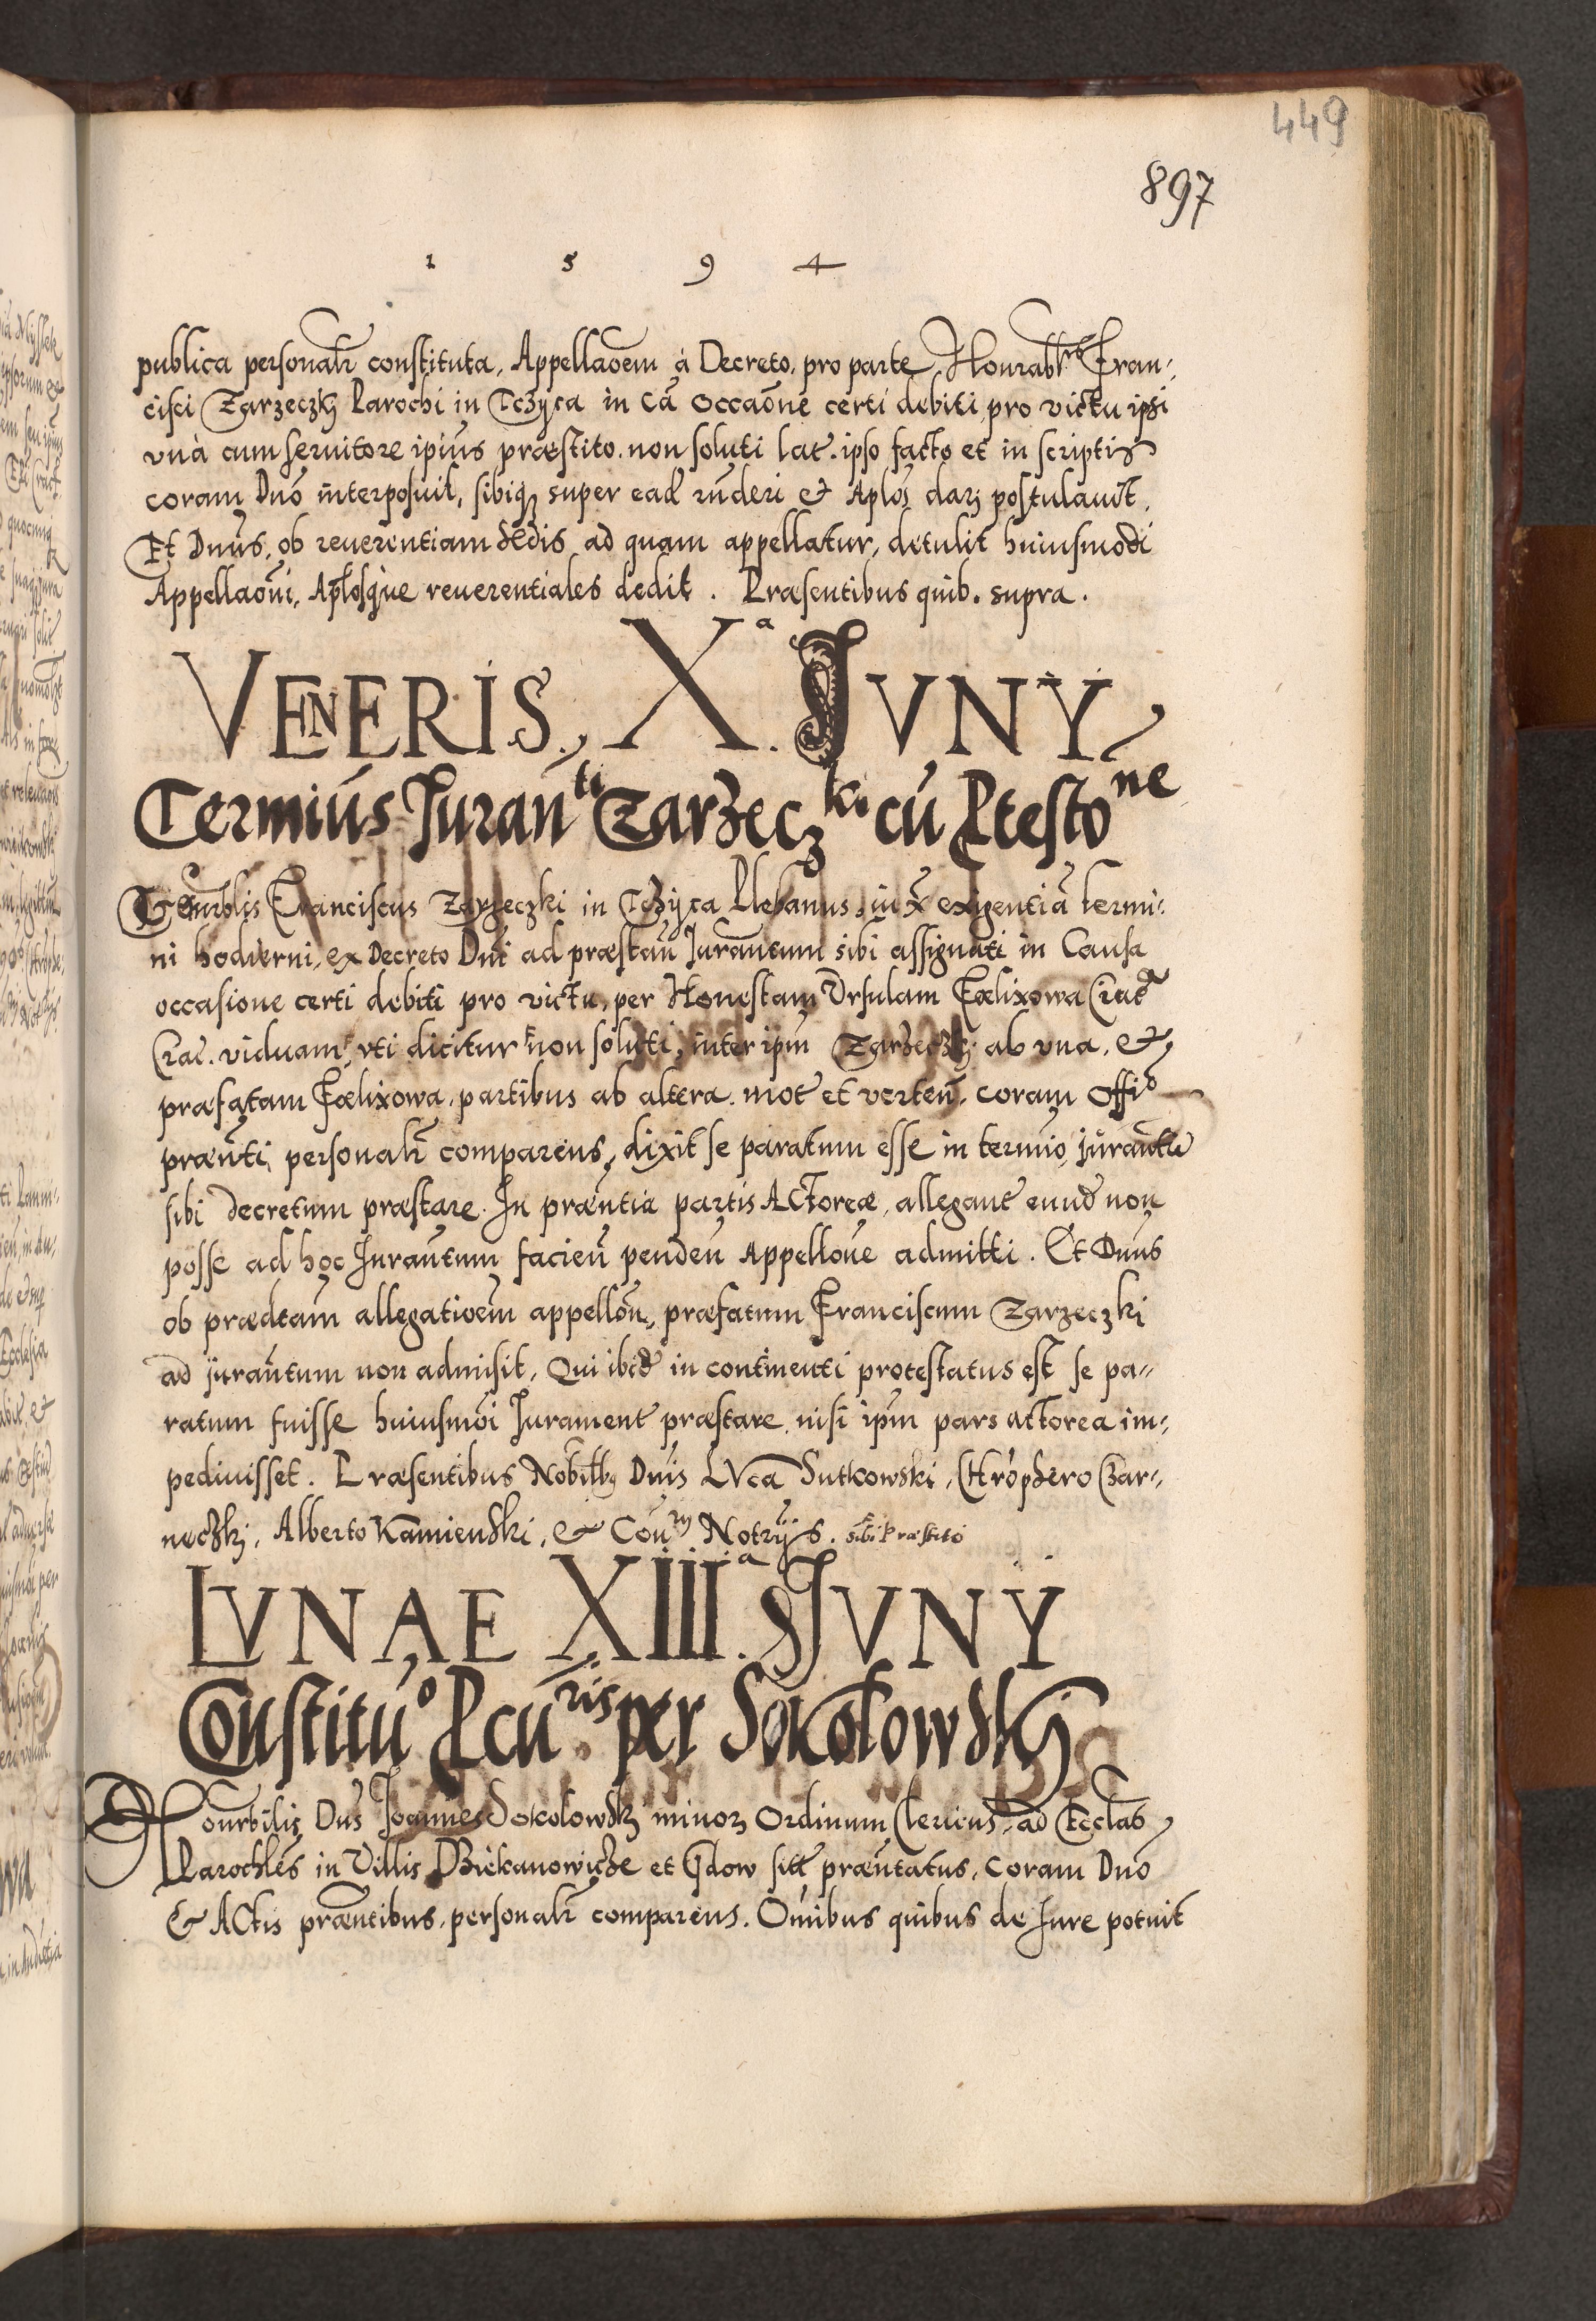 449
897
1 5 9 4
publica personalr constituta, Appellaoem à Decreto, pro parte Honrablis Fran-
cisci Zarzeczkj Parochi in Tczyca in Cã Occaõne certi debiti pro victu ipsi
vnà cum seruitore ipius præstito non soluti lat. ipso facto et in scriptis
coram Dnõ interposuit, sibiqʒ super ead rñderi & Aplõs darj postulauit.
Et Dnũs, ob reuerentiam sedis ad quam appellatur, detulit huiusmodi
Appellaõni, Aplosque reuerentiales dedit. Præsentibus quib. supra.
VENERIS, Xª. JVNY
Termiũs Juranti Zarzeczki cũ Ptestone
Honrblis Franciscus Zarzeczki in Tczyca Plebanus, iux exigentiã termi-
ni hodierni, ex Decreto Dni ad præstañ Jurantum sibi assignati in Causa
occasione certi debiti pro victu, per Honestam Vrsulam Fœlixowa Ciuẽ
Crac. viduam, vti dicitur non soluti, inter ipm Zarzeczkj ab vna, &
præfatam Fœlixowa, partibus ab altera mot et verteñ, coram Offiō
prænti personalr comparens, dixit se paratum esse in termio jurantũ
sibi decretum præstare. In præntia partis Actoreæ, allegant eund non
posse ad hoc Jurantum facieñ pendeñ Appelloñe admitti. Et Dnũs
ob prædctam allegatioem appelloñ, præfatum Franciscum Zarzeczki
ad jurantum non admisit, Qui ibid in continenti protestatus est se pa-
ratum fuisse huiusmõi Jurament præstare nisi ipm pars actorea im-
pediuisset. Præsentibus Nobilbʒ Dnis Lvca Sutkowski, Chrõphero Czar-
neczkj, Alberto Kamienski, & Couʳʸ Notrijs. sibi Præstito
LVNAE XIIIª. JVNY
Constitũo Pcuris per Sokołowskj
Honrbilis Dnũs Joannes Sokolowskj minorʒ Ordinum Clericus, ad Ecclas
Parochles in Villis Biekanowicze et Gdow sitt præntatus, Coram Dnõ
& Actis præntibus, personalr comparens. Omibus quibus de Jure potuit